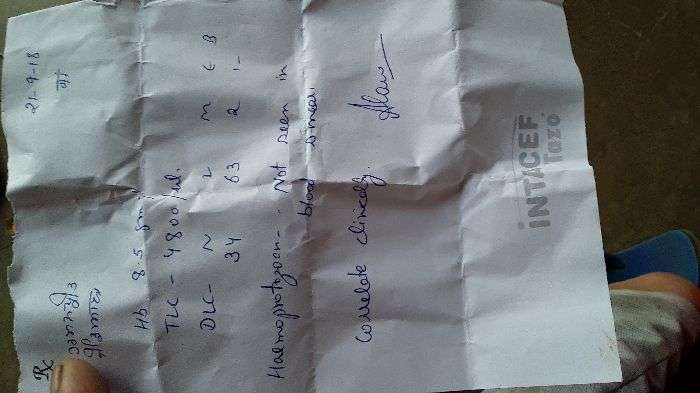 Rx
21-9-18
Hb 8.5 gm
TLC - 4800/ul.
DLC- N L M E B
34 63 2 1 -
Haemoprotozoan- Not seen in
blood smear.
Correlate clinically.
INTACEF
Tazo